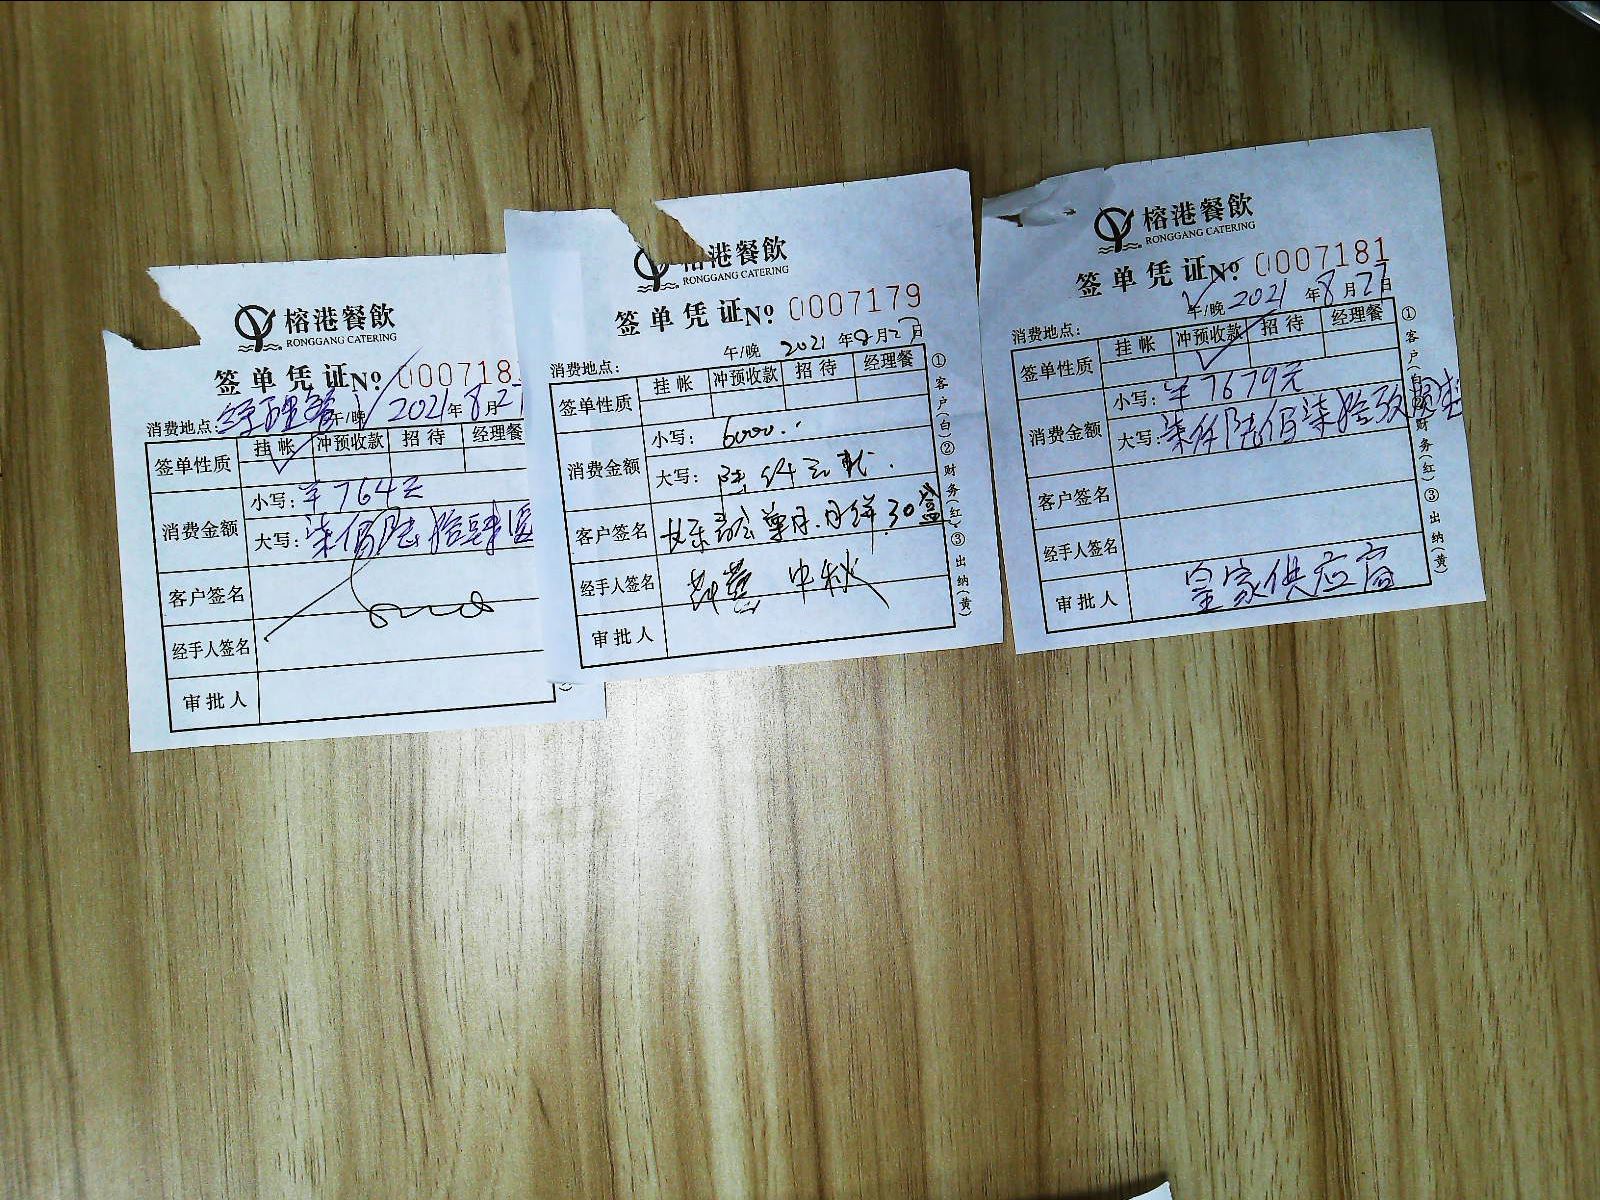 榕港餐飲
RONGGANG CATERING
签单凭证No 000718
消费地点：经理餐 午/晚 2021年8月27
签单性质 挂帐 冲预收款 招待 经理餐
消费金额
小写：¥764元
大写：柒佰陆拾肆圆
客户签名
经手人签名
审批人
港餐飲
RONGGANG CATERING
签单凭证No 0007179
午/晚 2021年8月27日
消费地点：
签单性质 挂帐 冲预收款 招待 经理餐
消费金额
小写：6000
大写：陆仟元
客户签名 月饼30盒
经手人签名 中秋
审批人
①客户(白)②财务(红)③出纳(黄)
榕港餐飲
RONGGANG CATERING
签单凭证No 0007181
午/晚 2021年8月27日
消费地点：
签单性质 挂帐 冲预收款 招待 经理餐
消费金额
小写：¥7679元
大写：柒仟陆佰柒拾玖圆整
客户签名
经手人签名
审批人 皇家供应商
①客户(白)财务(红)③出纳(黄)